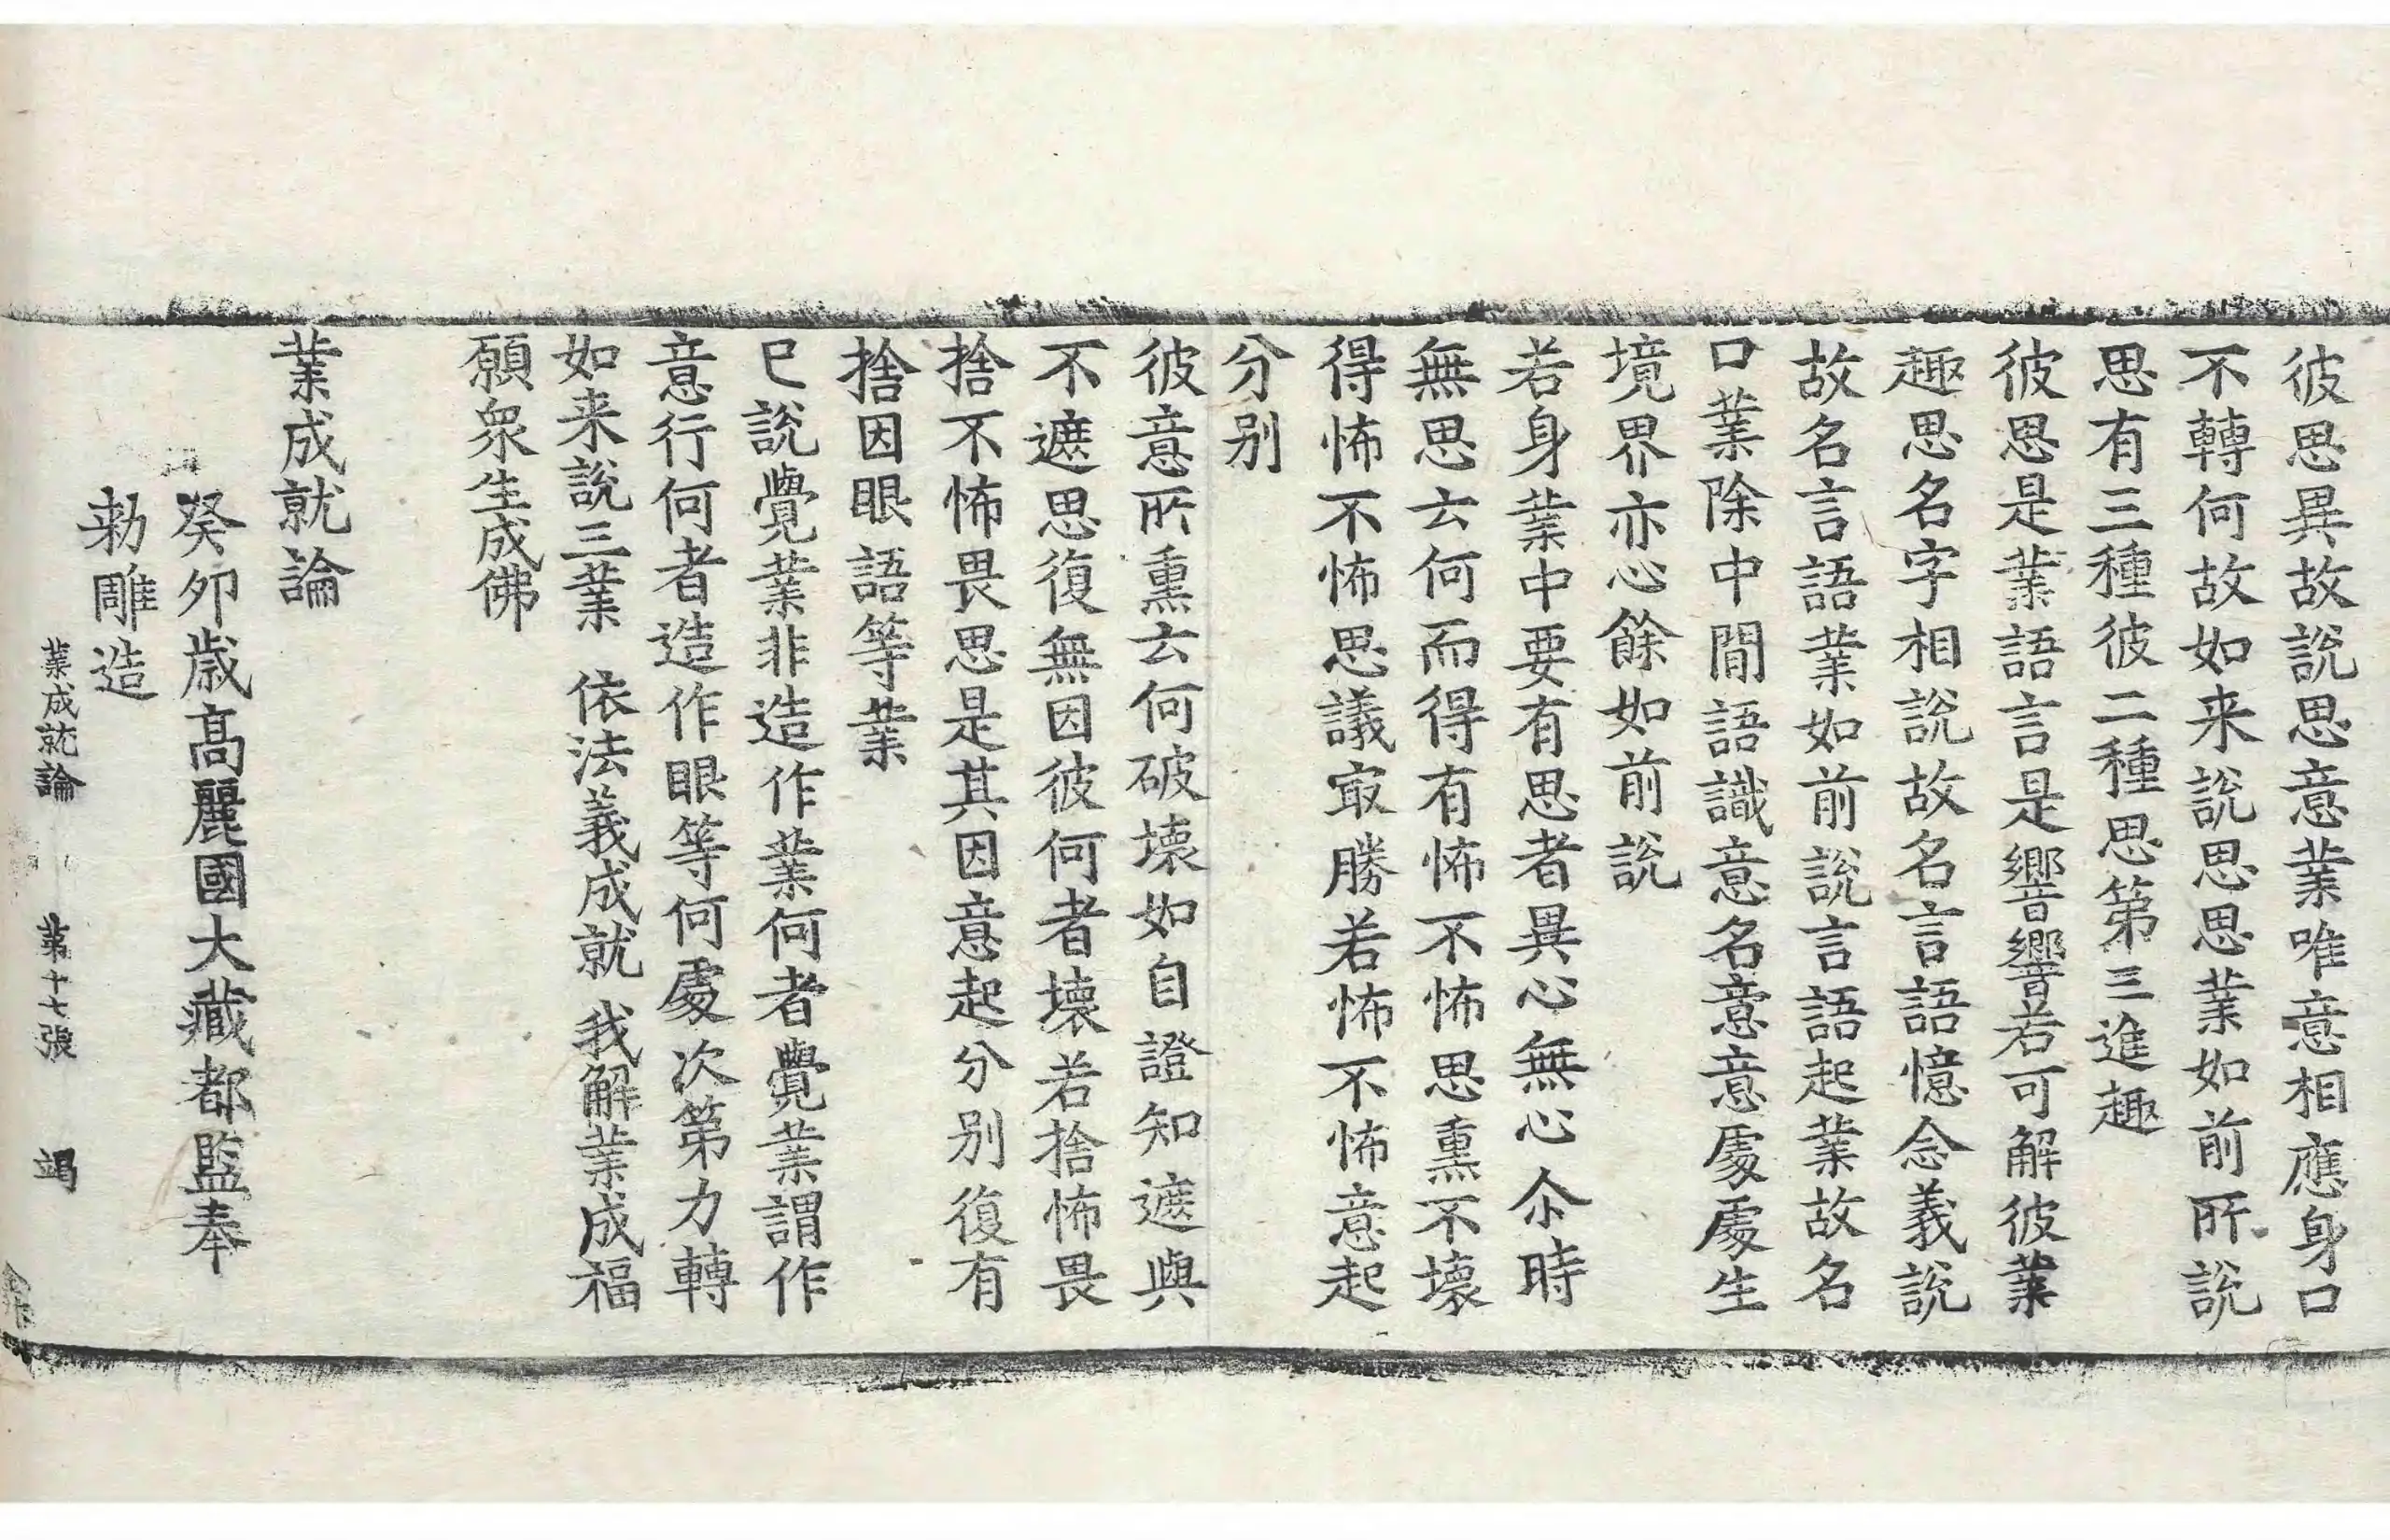 彼思異故說思意業唯意相應身口
不轉何故如来說思思業如前所說
思有三種彼二種思第三進趣
彼思是業語言是響響若可解彼業
趣思名字相說故名言語憶念義說
故名言語業如前說言語起業故名
口業除中間語識意名意意處處生
境界亦心餘如前說
若身業中要有思者異心無心尒時
無思云何而得有怖不怖思熏不壞
得怖不怖思議㝡勝若怖不怖意起
分別
彼意所熏云何破壞如自證知遮與
不遮思復無因彼何者壞若捨怖畏
捨不怖畏思是其因意起分別復有
捨因眼語等業
已說覺業非造作業何者覺業謂作
意行何者造作眼等何處次第力轉
如来說三業 依法義成就 我解業成福
願衆生成佛
業成就論
癸卯歲高麗國大藏都監奉
勑雕造
業成就論 第十七張 竭